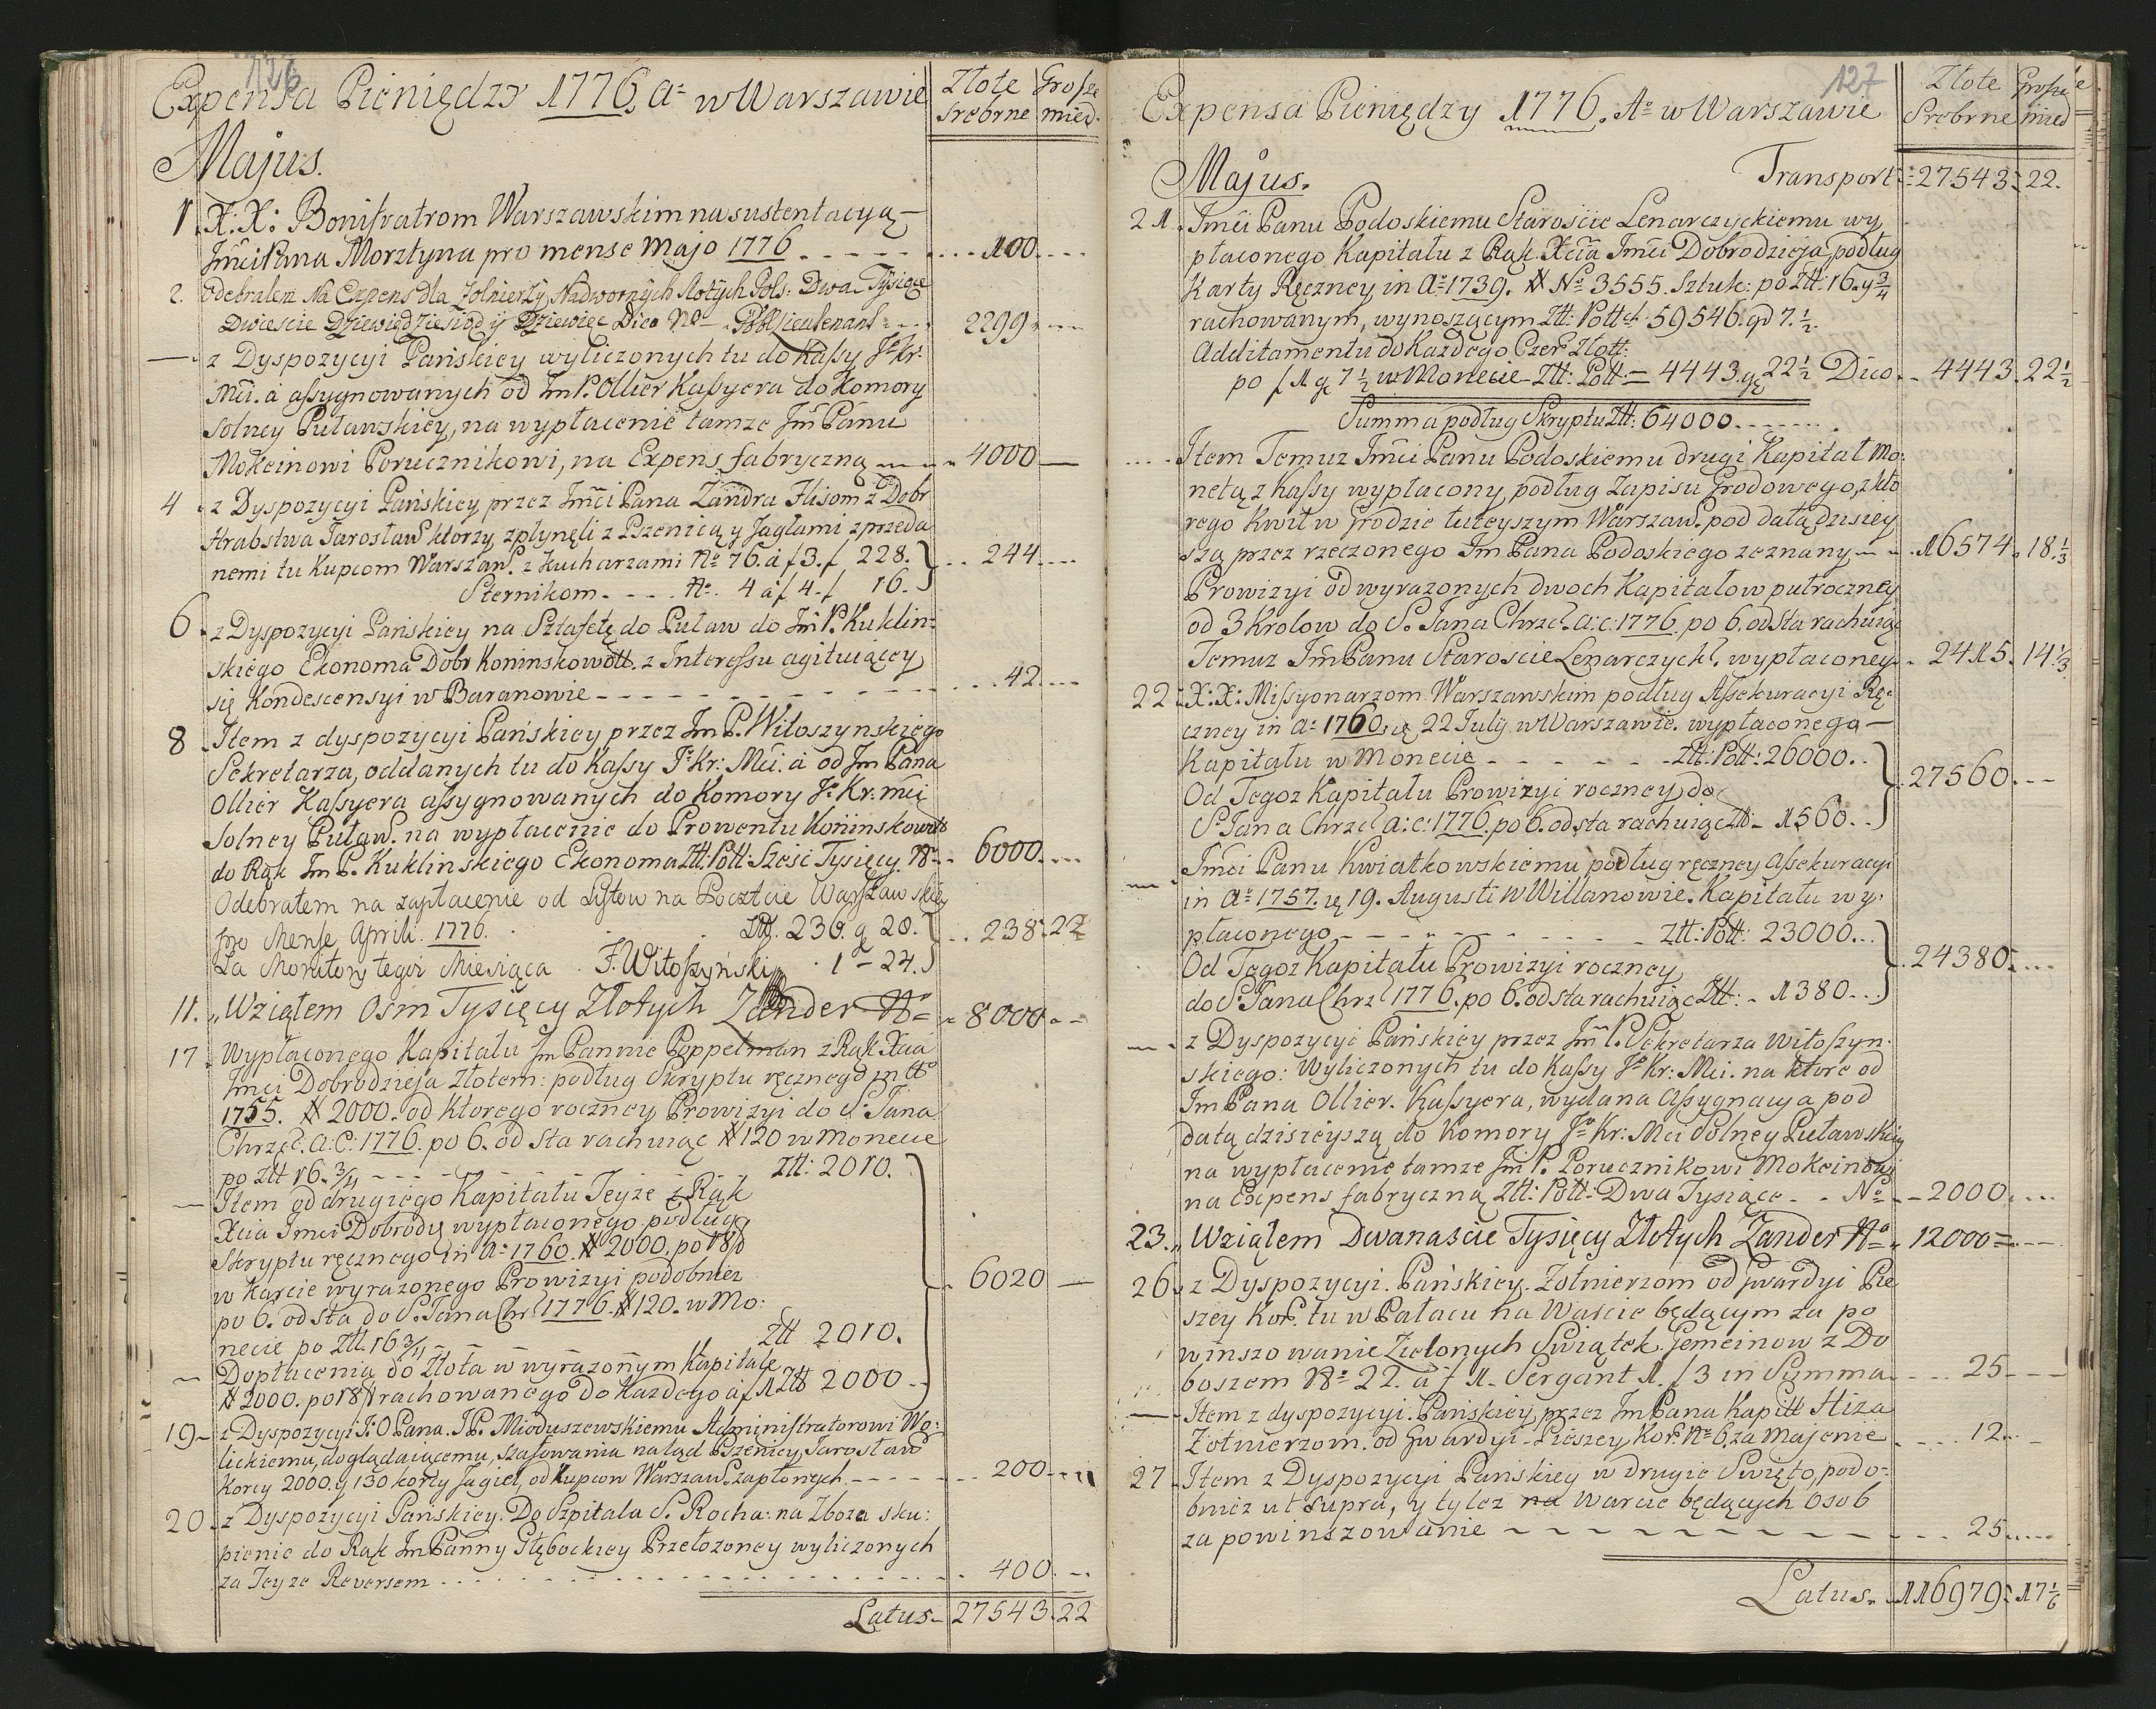 126
Expensa Pieniędzy 1776 Aº w Warszawie
Złote Grosze
srebrne mied.
Majus.
1. X: X: Bonifratrom Warszawskim na sustentacyą
Jmći Pana Morztyna pro mense Majo 1776 100
2. Odebrałem Na Expens dla Zołnierzy Nadwornych złotych Pols: Dwa Tysiące
Dwiescie Dziewiędziesiąd y Dziewięc Dico Nº Lieutenant 2299
— z Dyspozycyi Pańskiey wyliczonych tu do Kassy Jº Kr:
Mći. a assygnowanych od Jm P. Ollier Kassyera do Komory
Solney Puławskiey, na wypłacenie tamze Jm Panu
Mokcinowi Porucznikowi, na Expens fabryczną 4000
4. z Dyspozycyi Pańskiey przez Jmći Pana Zandra Flisom z Dobr
Hrabstwa Jarosław ktorzy zpłynęli z Pszenicą y Jagłami zprzeda
nemi tu Kupcom Warszaw. z Kucharzami Nº 76. a f 3. f 228. 244
Sternikom. Nº. 4 a f 4. f 16.
6. z Dyspozycyi Pańskiey na Sztafetę do Puław do Jm P. Kuklin:
skiego Ekonoma Dobr Koninskowoll. z Interessu agituiącey
się Kondescensyi w Baranowie 42
8. Item z dyspozycyi Pańskiey przez Jm P. Witoszynskiego
Sekretarza, oddanych tu do Kassy Jº Kr: Mći. a od Jm Pana
Ollier Kassyera assygnowanych do Komory Jº Kr: mći
Solney Puław. na wypłacenie do Prowentu Koninskowoll
do Rąk Jm P. Kuklinskiego Ekonoma Złł: Poll: Sześć Tysięcy Nº 6000
Odebrałem na zapłacenie od Listow na Poczcie Warszawskiey
pro Mense Aprili. 1776. Złł. 236. g 28. 238 22
Za Monitory tegoż Miesiąca J. Witoszyński 1 - 24.
11. Wziąłem Osm Tysięcy Złotych Zander Nº 8000
17. Wypłaconego Kapitału Jm Pannie Poppelman z Rąk Xcia
Jmci Dobrodzieja Złotem: podług Skryptu ręcznego in Aº
1755. # 2000. od ktorego roczney Prowizyi do S. Jana
Chrzcl. A: C: 1776. po 6. od Sta rachuiąc # 120 w Monecie
po Złł 16. 3/4 Złł: 2010.
— Item od drugiego Kapitału Teyze z Rąk
Xcia Jmci Dobrody wypłaconego podług
Skryptu ręcznego in Aº 1760. # 2000. po 18 f
w Karcie wyrazonego Prowizyi podobniez
po 6. od sta do S. Jana Chr. 1776. # 120. w Mo: 6020
necie po Złł. 16 3/4 Złł 2010.
— Dopłacenia do Złota w wyrazonym Kapitale
# 2000. po 18 f rachowanego do Kazdego a f 1 Złł 2000
19. z Dyspozycyi J: O Pana. J P. Mioduszewskiemu Administratorowi Wo:
lickiemu, doglądaiącemu, szafowania na ląd Pszenicy Jarosław
Korcy 2000. y 130 korcy Jagieł, od Kupcow Warszaw. zapłonych 200
20. z Dyspozycyi Pańskiey. Do Szpitala S. Rocha: na Zboza sku:
pienie do Rąk Jm Panny Głębockiey Przełozoney wyliczonych
za Teyze Rewersem 400
Latus 27543 22
127
Expensa Pieniędzy 1776. Aº w Warszawie
Złote Grosze
Srebrne mied
Majus. Transport 27543 22.
21. Jmći Panu Podoskiemu Staroście Lenarczyckiemu wy
płaconego Kapitału z Rąk Xcia Jmći Dobrodzieja, podług
Karty Ręczney in Aº 1739. # Nº 3555. Sztuk: po Złł: 16. y 3/4
rachowanym, wynoszącym Złł: Poll. 59546. gr 7. 1/2.
Additamentu do Kazdego Czer: Złott:
po f 1 g 7 1/2 w Monecie Złł: Poll = 4443. g 22 1/2 Dico 4443 22 1/2
Summa podług Skryptu Złł: 64000.
Item Temuz Jmći Panu Podoskiemu drugi Kapitał Mo:
netą z Kassy wypłacony, podług Zapisu Grodowego, z kto
rego Kwit w Grodzie tuteyszym Warszaw. pod datą dzisiey
szą przez rzeczonego Jm Pana Podoskiego zeznany 16574 18 1/3
Prowizyi od wyrazonych dwoch Kapitałow pułroczney
od 3 Krolow do S. Jana Chrzc. a: c: 1776 po 6. od Sta rachuiąc
Temuz Jm Panu Staroscie Lenarczyck. wypłaconey 2415 14 1/3
22. X: X: Missyonarzom Warszawskim podług Assekuracyi Rę:
czney in Aº 1760. 22 July w Warszawie. wypłaconego
Kapitału w Monecie Złł: Poll: 26000.
Od Tegoz Kapitału Prowizyi roczney do 27560
S. Jana Chrzcl a: c: 1776. po 6. od sta rachuiąc Złł 1560.
— Jmći Panu Kwiatkowskiemu podług ręczney Assekuracyi
in Aº 1757. 19. Augusti w Willanowie. Kapitału wy:
płaconego Złł: Poll: 23000.
Od Tegoz Kapitału Prowizyi roczney 24380
do S. Jana Chrz. 1776. po 6. od sta rachuiąc Złł: 1380.
— z Dyspozycyi Pańskiey przez Jm P. Sekretarza Witoszyn:
skiego: Wyliczonych tu do Kassy Jº Kr: Mći. na ktore od
Jm Pana Ollier. Kassyera, wydana Assygnacya pod
datą dzisieyszą do Komory Jº Kr: Mći Solney Puławskiey
na wypłacenie tamze Jm P. Porucznikowi Mokcinowi
na Expens fabryczną Złł: Poll: Dwa Tysiące Nº 2000
23. Wziąłem Dwanaście Tysięcy Złotych Zander Nº 12000
26. z Dyspozycyi. Pańskiey. Zołnierzom od Gwardyi Pie
szey Kor. tu w Pałacu na Warcie będącym za po
winszowanie Zielonych Swiątek. Gemeinow z Do
boszem Nº 22. a f 1. Sergant 1. f 3 in Summa 25
— Item z dyspozycyi. Pańskiey przez Jm Pana Kapitt Hiza
Zołnierzom. od Gwardyi Pieszey Kor. Nº 6. za Majenie 12
27. Item z Dyspozycyi Pańskiey w drugie Swięto, podo:
bniez ut supra, y tylez na Warcie będących Osob
za powinszowanie 25
Latus 116979 17 1/6